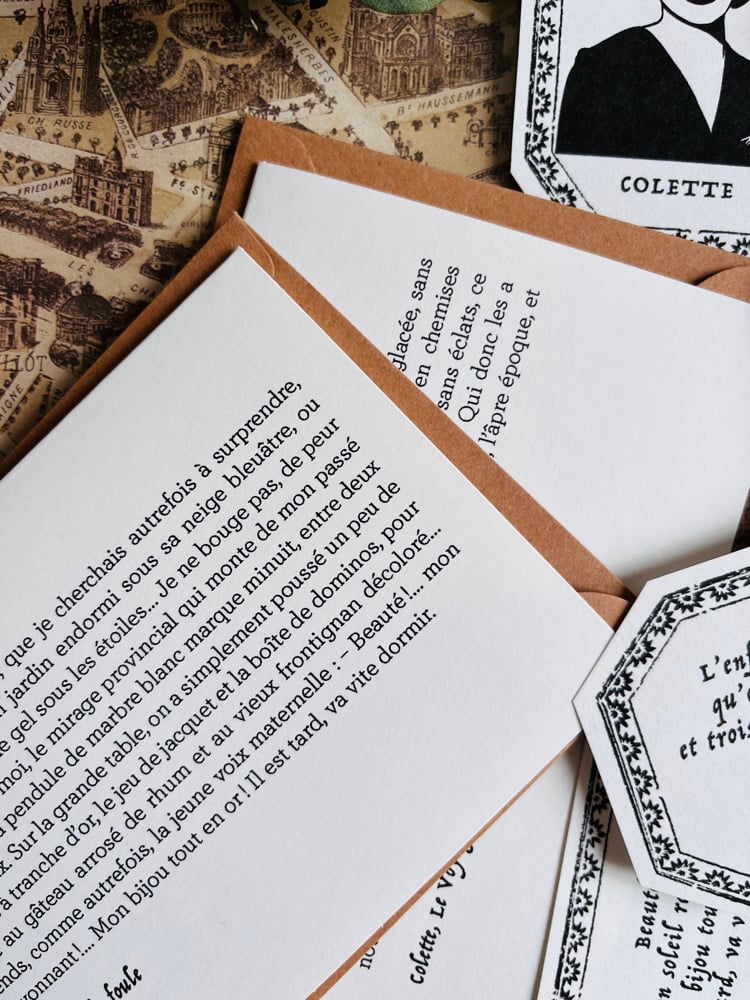 CH. RUSSE
MALESHERBES
BT HAUSSEMANN
FRIEDLAND
LES
COLETTE
glacée, sans
en chemises
sans éclats, ce
Qui donc les a
l'âpre époque, et
que je cherchais autrefois à surprendre,
jardin endormi sous sa neige bleuâtre, ou
gel sous les étoiles... Je ne bouge pas, de peur
moi, le mirage provincial qui monte de mon passé
pendule de marbre blanc marque minuit, entre deux
Sur la grande table, on a simplement poussé un peu de
à tranche d'or, le jeu de jacquet et la boîte de dominos, pour
au gâteau arrosé de rhum et au vieux frontignan décoloré...
comme autrefois, la jeune voix maternelle : – Beauté !... mon
! ... Mon bijou tout en or ! Il est tard, va vite dormir.
foule
Colette, Le
L'enf
qu'
et trois
Beaut
soleil
bijou tou
va v